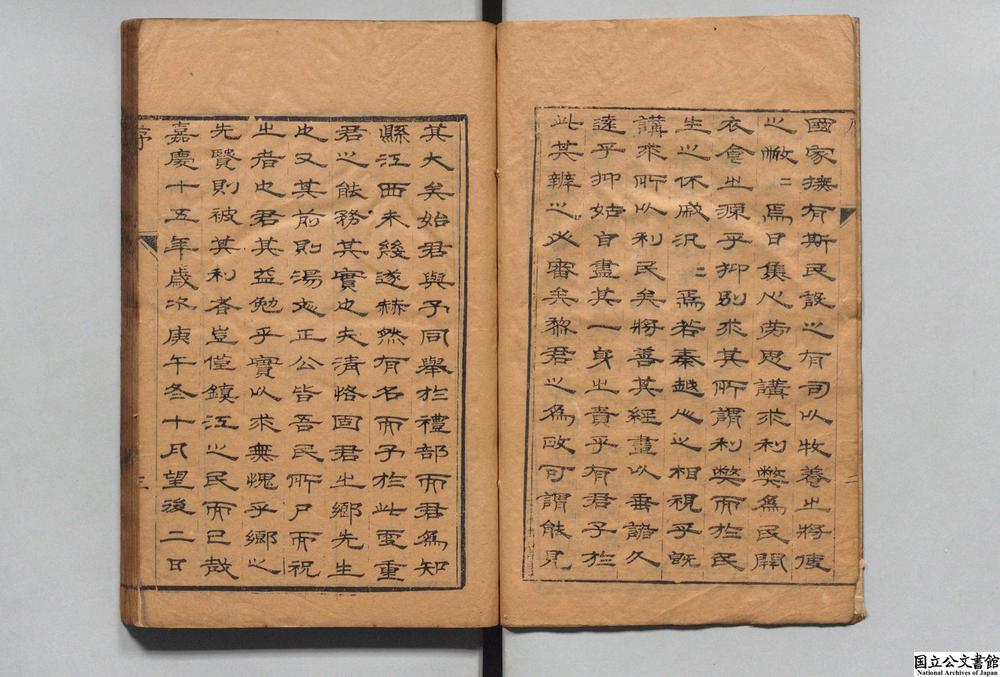 國家撫有斯民設之有司以牧養之將使
之敝〻焉日焦心勞思講求利弊為民開
衣食之源乎抑別求其所謂利弊而於民
生之休戚況〻焉若秦越人之相視乎既
講求所以利民矣將善其經畫以垂諸久
遠乎抑姑自盡其一身之責乎有君子於
此其辨之必審矣黎君之為政可謂能見
其大矣始君與予同舉於禮部而君為知
縣江西未幾遂赫然有名而予於此更重
君之能務其實也夫清恪固君之鄉先生
也又其前則湯文正公皆吾民所尸而祝
之者也君其益勉乎實以求無愧乎鄉之
先賢則被其利者豈僅鎮江之民而已哉
嘉慶十五年歲次庚午冬十月望後二日
序
三
国立公文書館
National Archives of Japan